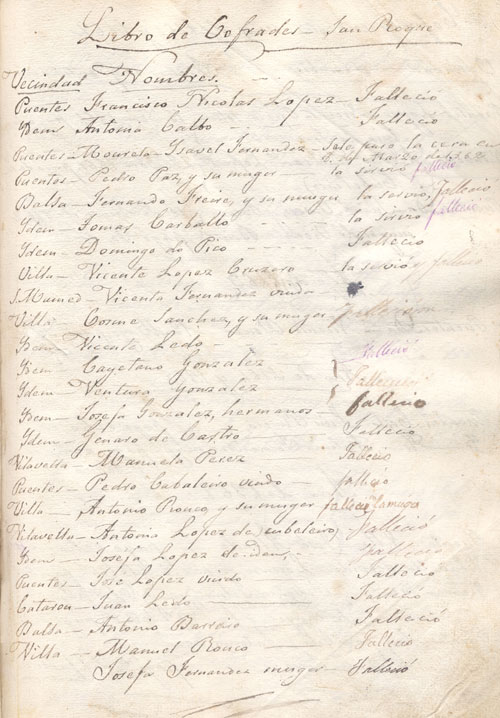 Libro de Cofrades - San Roque
Vecindad Nombres.
Puentes Francisco Nicolas Lopez - Fallecio
Idem Antonia Calbo - Fallecio
Puentes - Moureta - Ysavel Fernandez - Se le puso la cera en
Marzo de
Puentes - Pedro Paz, y su muger la sirvió falleció
Balsa - Fernando Freire, y su muger la servio, fallecio
Ydem - Tomas Carballo - la sirvio falleció
Ydem - Domingo do Pico - Fallecio
Villa - Vicente Lopez Cruzero la sevió y fallecio
S. Mamed - Vicenta Fernandez viuda
Villa - Cosme Sanchez, y su muger fallecieron
Idem - Vicente Ledo - 
Idem - Cayetano Gonzalez falleció
Ydem - Ventura Gonzalez
Idem - Josefa Gonzalez, hermanos - fallecio
Ydem - Genaro de Castro - Fallecio
Vilavella - Manuela Perez Fallecio
Puentes - Pedro Cabaleiro viudo - fallecio
Villa - Antonio Rouco, y su muger fallecio la muger
Vilavella - Antonio Lopez de Falleció
Idem - Josefa Lopez de idem, - Fallecio
Puentes - José Lopez viudo Fallecio
Cataron - Juan Ledo - Falleció
Balsa - Antonio Barroso Falleció
Villa - Manuel Rouco - Fallecio
Josefa Fernandez muger - Falleció